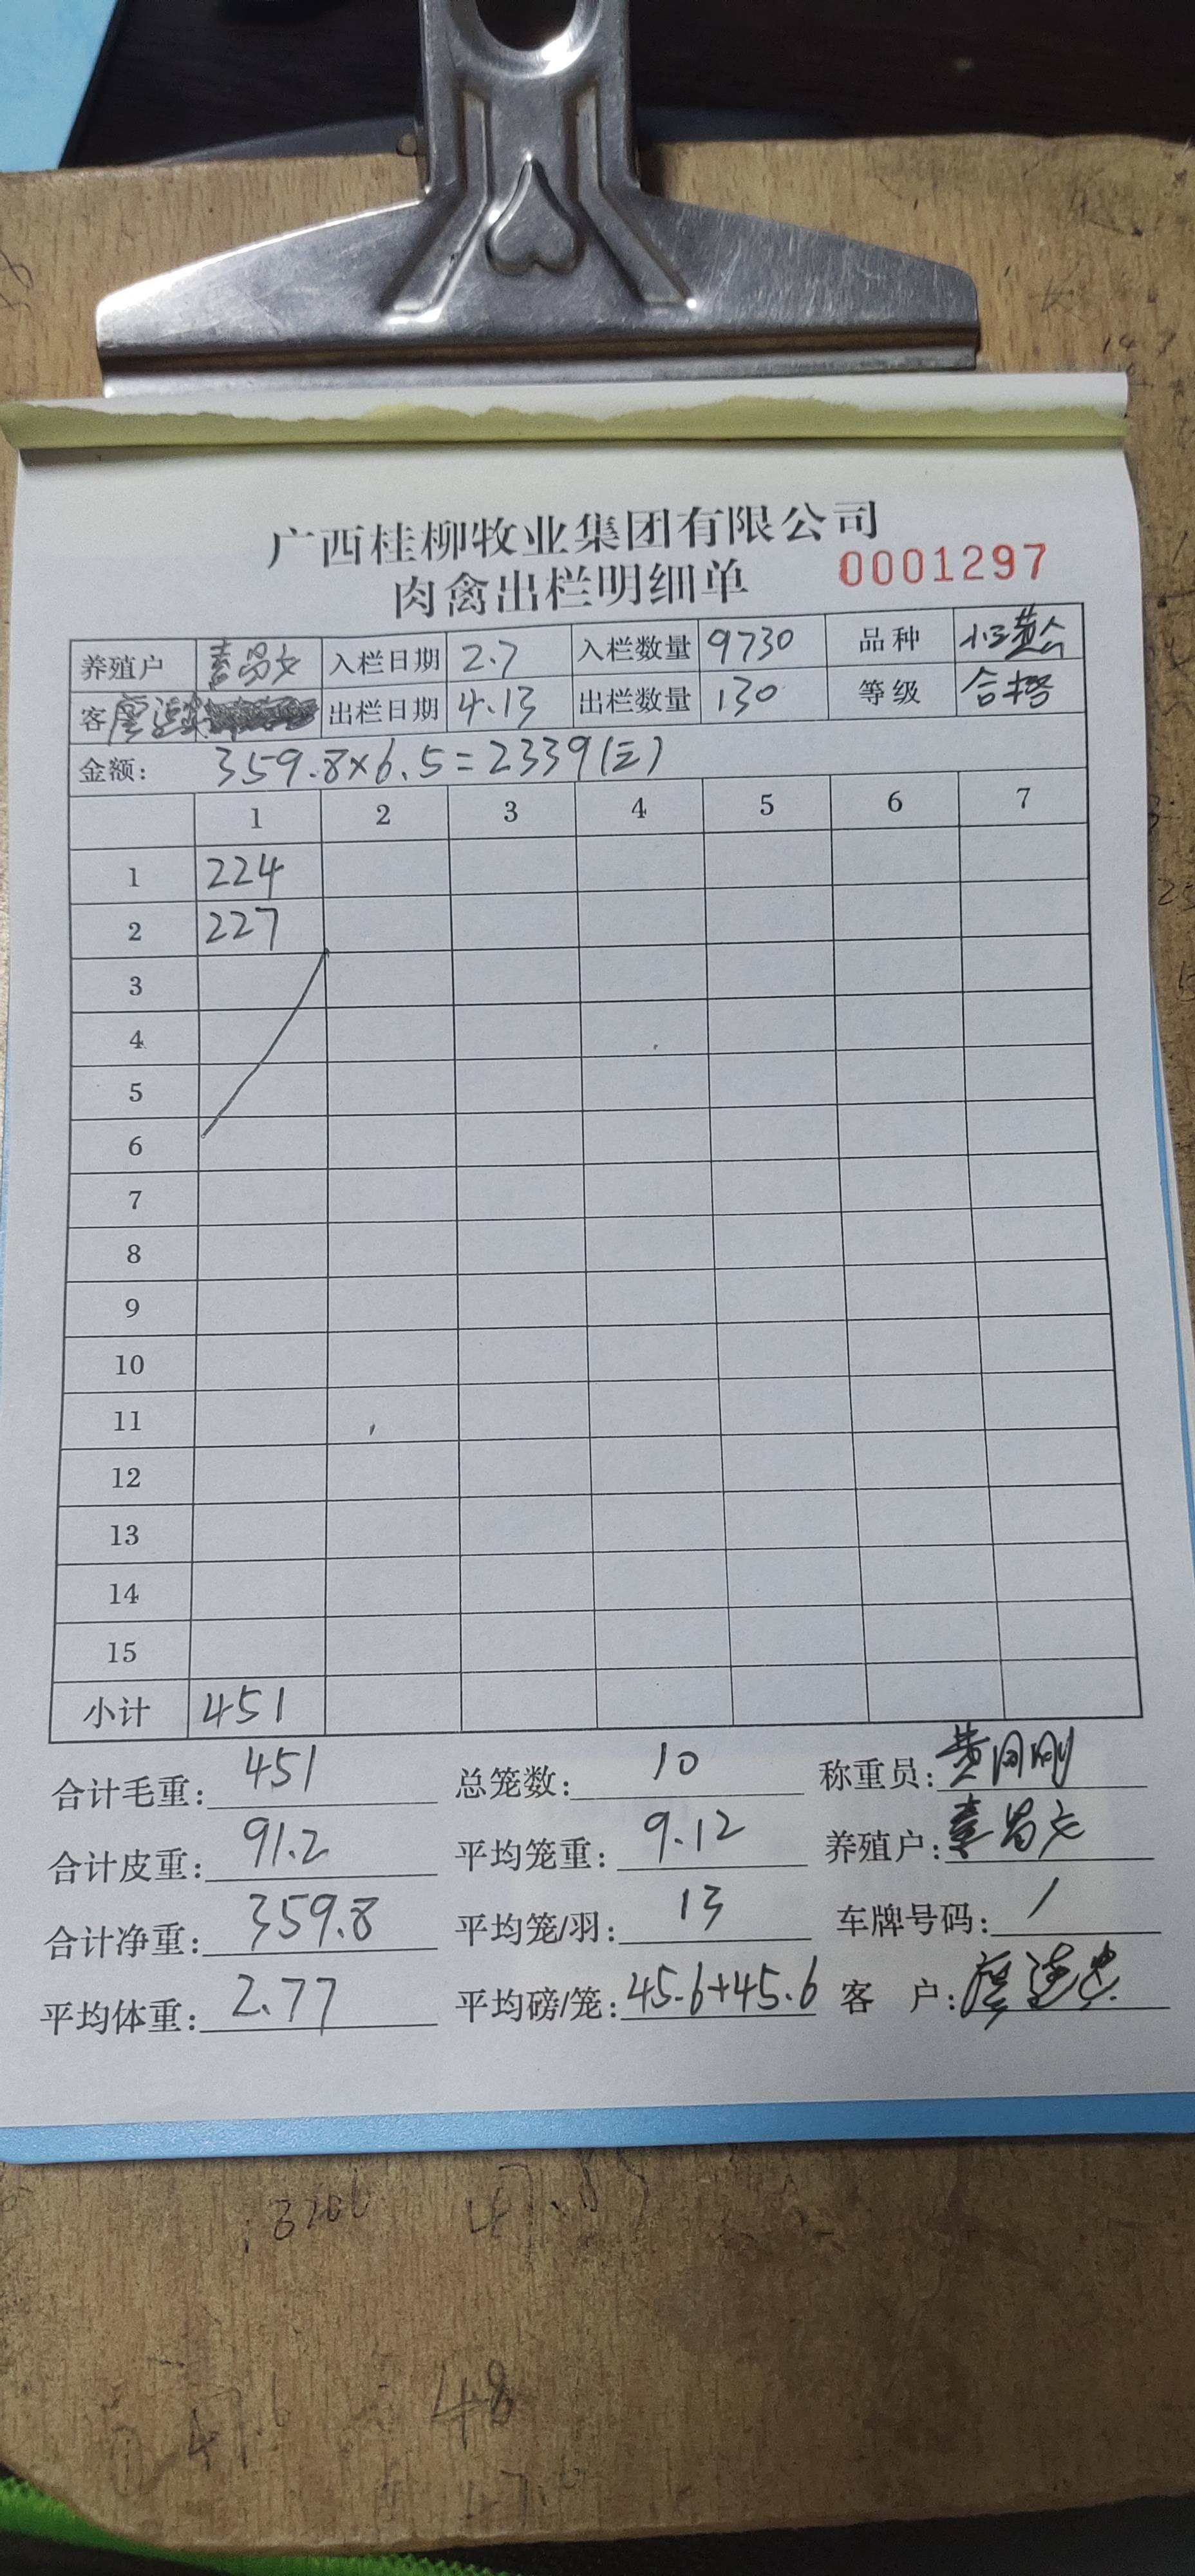 广西桂柳牧业集团有限公司
肉禽出栏明细单 0001297
养殖户 入栏日期 2.7 入栏数量 9730 品种
客 出栏日期 4.13 出栏数量 130 等级 合格
金额: 359.8×6.5=2339(元)
1 2 3 4 5 6 7
1 224
2 227
3
4
5
6
7
8
9
10
11
12
13
14
15
小计 451
合计毛重: 451 总笼数: 10 称重员:
合计皮重: 91.2 平均笼重: 9.12 养殖户:
合计净重: 359.8 平均笼/羽: 13 车牌号码: /
平均体重: 2.77 平均磅/笼: 45.6+45.6 客 户:
48